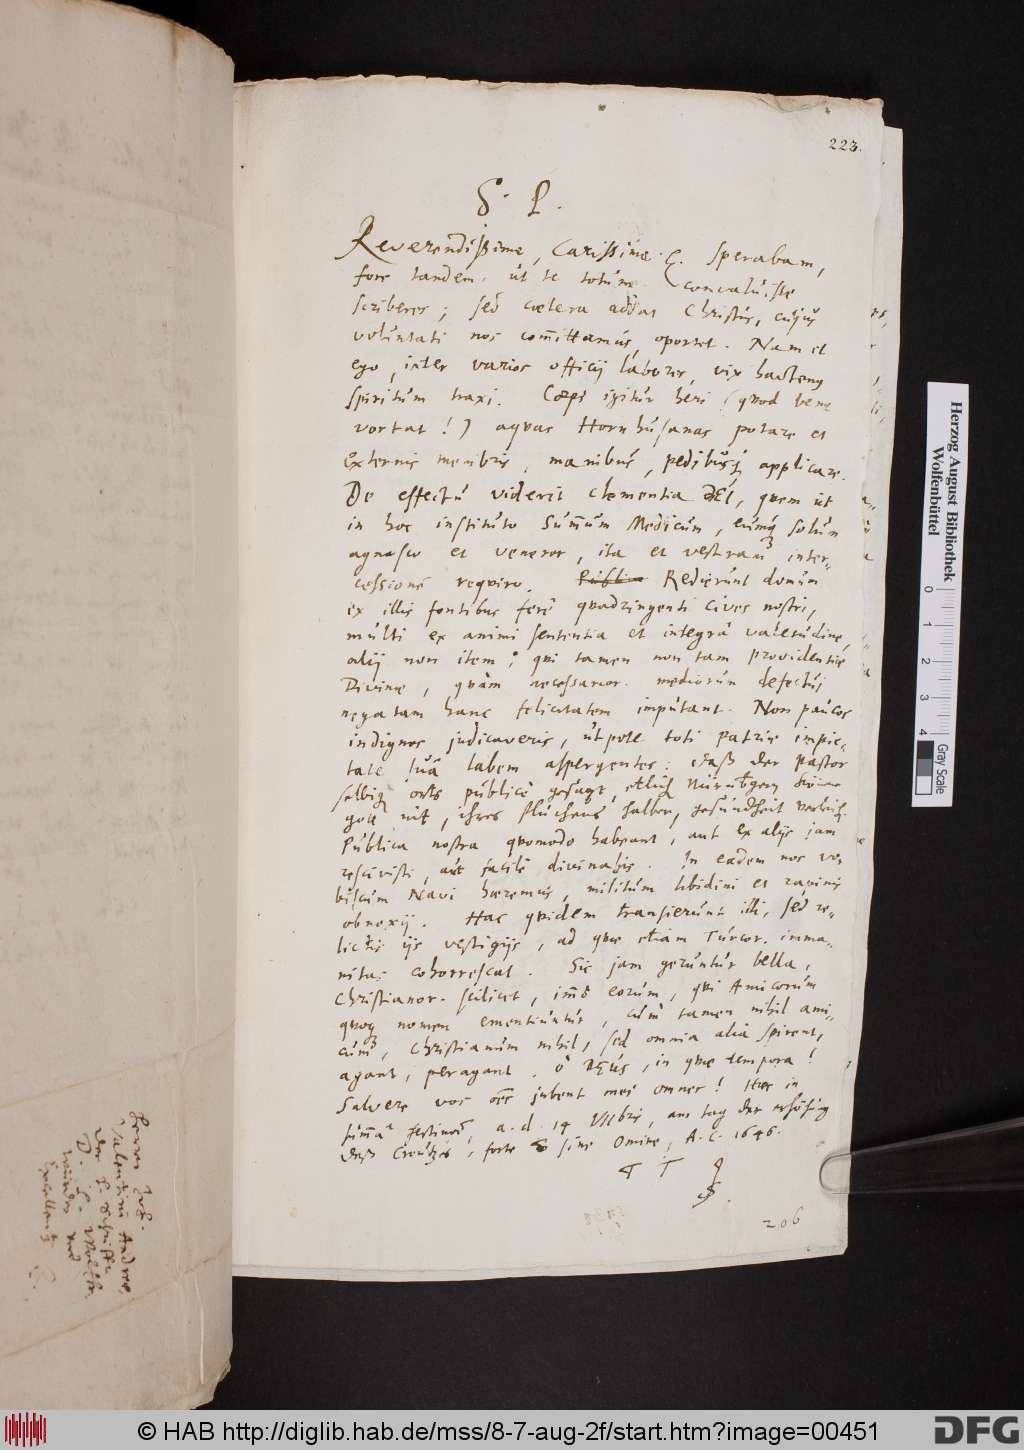 223.
S. P.
Reverendissime, Carissime C. sperabam,
fore tandem, ut te totum convaluisse
scriberes; sed caetera addat Christus, cujus
voluntati nos com̄ittamus, oportet. Nam et
ego, inter varios officij labores, vix hactenus
spiritum traxi. Coepi igitur heri (quod bene
vortat!) aquas Hornhusanas potare et
externis membris, manibus, pedibusq; applicare.
De effectu viderit clementia DEI, quem ut
in hoc instituto Sum̄um Medicum, eumq; solum
agnosco et veneror, ita et vestram inter-
cessionē requiro. Redierunt domum
ex illis fontibus ferè quadringenti cives nostri,
multi ex animi sententia et integrâ valetudine,
alij non item; qui tamen non tam providentiae
Divinae, quàm necessarior. mediorum defectui
negatam hanc felicitatem imputant. Non paucos
indignos judicaveris, utpote toti patriae impie-
tate suâ labem aspergentes: daß der Pastor
selbig orts publicè gesagt, etlich Nürnbgern könne
gott nit, ihres fluchens halber, gesundheit verleih.
Publica nostra quomodo habeant, aut ex alijs jam
rescivisti, aut facilè divinabis. In eadem nos vo-
biscum Navi haeremus, militum libidini et rapinis
obnoxij. Hac quidem transierunt illi, sed re-
lictis ijs vestigijs, ad quae etiam Turcor. imma-
nitas cohorrescat. Sic jam geruntur bella,
Christianor. scilicet, immò eorum, qui Amicorum
quoq; nomen ementiuntur, cùm tamen nihil ami-
cum, Christianum nihil, sed omnia alia spirent,
agant, peragant. ô DEUS, in quae tempora!
Salvere vos oēs jubent mei omnes! Haec in
sum̄a festinatō, a. d. 14 VIIbris, am tag der erhöhūg
deß Creutzes, forte sine Omine, A. C. 1646.
T T
S.
206
Herren Joh.
Valentini Andreae,
der H. Schrifft
D.
würden und
Excellentz
Herzog August Bibliothek
Wolfenbüttel
0 1 2 3 4
Gray Scale
© HAB http://diglib.hab.de/mss/8-7-aug-2f/start.htm?image=00451
DFG